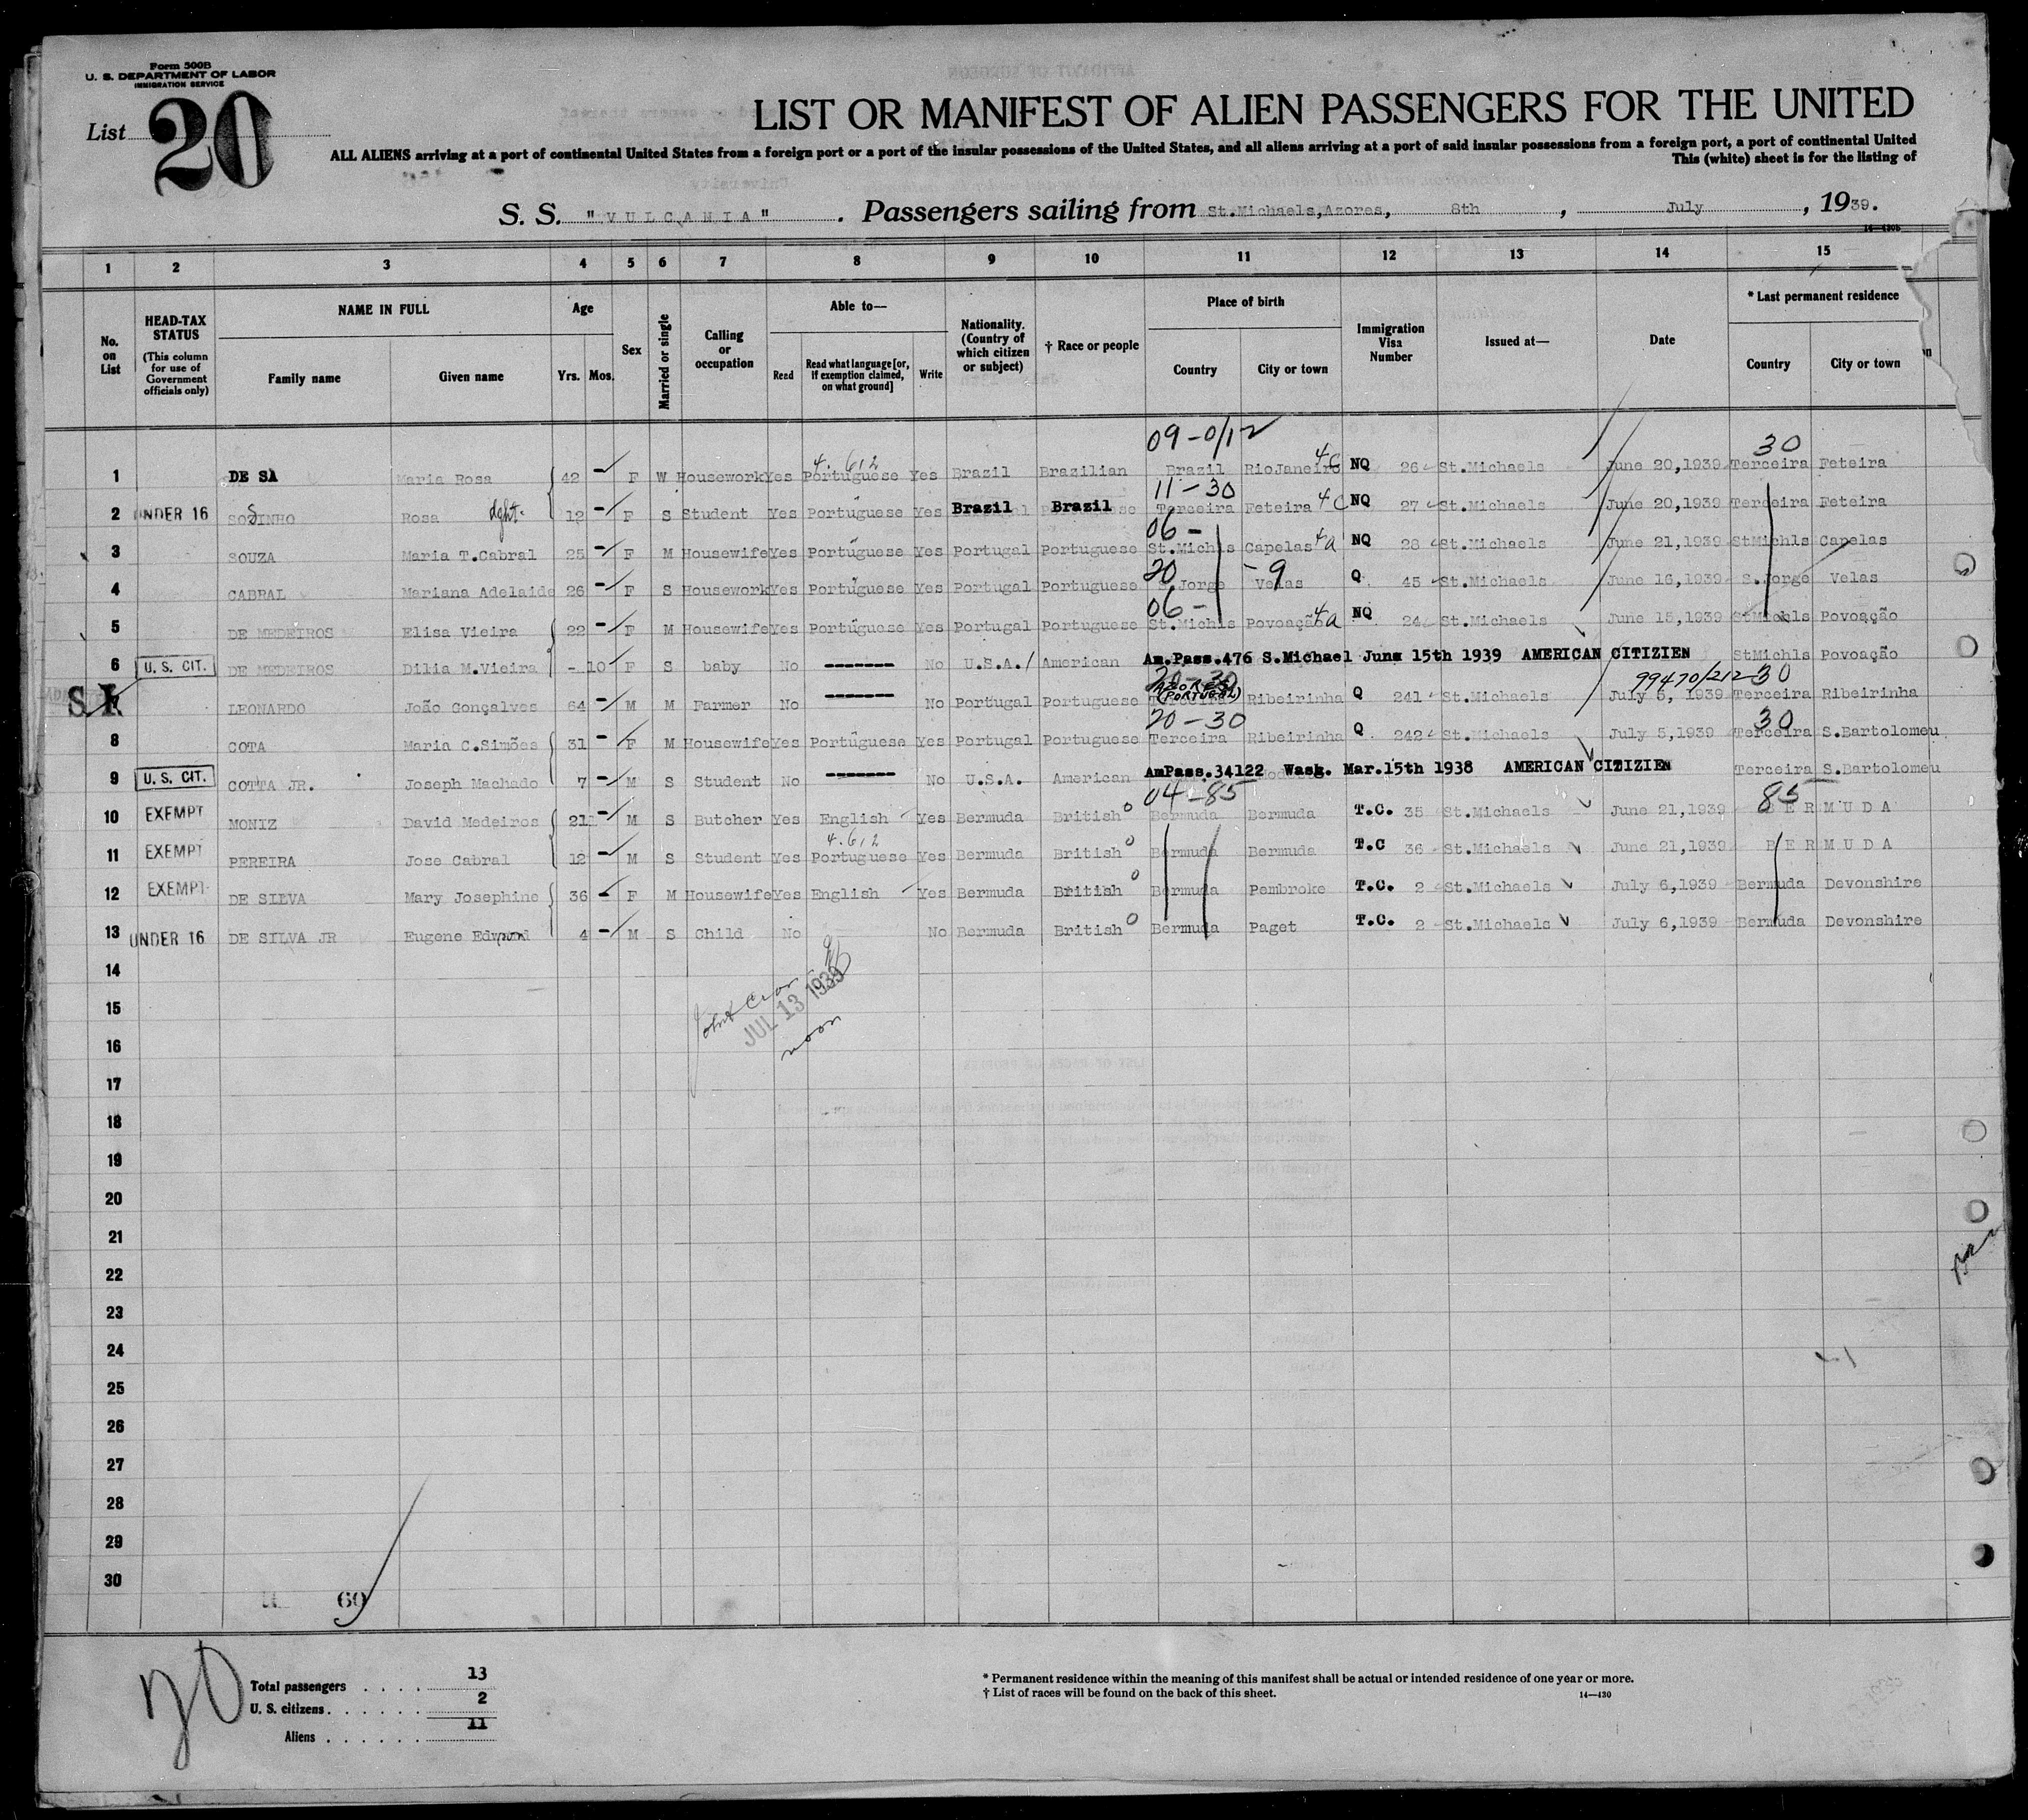 Form 500B
U. S. DEPARTMENT OF LABOR
IMMIGRATION SERVICE
List 20
LIST OR MANIFEST OF ALIEN PASSENGERS FOR THE UNITED
ALL ALIENS arriving at a port of continental United States from a foreign port or a port of the insular possessions of the United States, and all aliens arriving at a port of said insular possessions from a foreign port, a port of continental United
This (white) sheet is for the listing of
S. S. "VULCANIA". Passengers sailing from St.Michaels,Azores, 8th, July, 1939.
14—430b
1 2 3 4 5 6 7 8 9 10 11 12 13 14 15
No. on List
HEAD-TAX STATUS (This column for use of Government officials only)
NAME IN FULL
Family name Given name
Age
Yrs. Mos.
Sex
Married or single
Calling or occupation
Able to—
Read Read what language [or, if exemption claimed, on what ground] Write
Nationality. (Country of which citizen or subject)
† Race or people
Place of birth
Country City or town
Immigration Visa Number
Issued at—
Date
* Last permanent residence
Country City or town
09-0/12 30
4.612
1 DE SA Maria Rosa 42 — F W Housework Yes Portuguese Yes Brazil Brazilian Brazil RioJaneiro 4C NQ 26 St.Michaels June 20,1939 Terceira Feteira
11-30
2 UNDER 16 SOZINHO Rosa dght. 12 — F S Student Yes Portuguese Yes Brazil Brazil Terceira Feteira 4C NQ 27 St.Michaels June 20,1939 Terceira Feteira
06-
3 SOUZA Maria T.Cabral 25 — F M Housewife Yes Portuguese Yes Portugal Portuguese St.Michls Capelas 4a NQ 28 St.Michaels June 21,1939 StMichls Capelas
20 -9
4 CABRAL Mariana Adelaide 26 — F S Housework Yes Portuguese Yes Portugal Portuguese S.Jorge Velas Q 45 St.Michaels June 16,1939 S.Jorge Velas
06-
5 DE MEDEIROS Elisa Vieira 22 — F M Housewife Yes Portuguese Yes Portugal Portuguese St.Michls Povoação 4a NQ 24 St.Michaels June 15,1939 StMichls Povoação
6 U. S. CIT. DE MEDEIROS Dilia M.Vieira - 10 F S baby No ------- No U.S.A. American Am.Pass.476 S.Michael June 15th 1939 AMERICAN CITIZIEN StMichls Povoação
20-30 99470/212-30
S.I. LEONARDO João Gonçalves 64 — M M Farmer No ------- No Portugal Portuguese AZORES (PORTUGAL) Ribeirinha Q 241 St.Michaels July 5, 1939 Terceira Ribeirinha
20-30 30
8 COTA Maria C.Simões 31 — F M Housewife Yes Portuguese Yes Portugal Portuguese Terceira Ribeirinha Q 242 St.Michaels July 5,1939 Terceira S.Bartolomeu
9 U. S. CIT. COTTA JR. Joseph Machado 7 — M S Student No ------- No U.S.A. American AmPass.34122 Wash. Mar.15th 1938 AMERICAN CITIZIEN Terceira S.Bartolomeu
04-85 85
10 EXEMPT MONIZ David Medeiros 21 — M S Butcher Yes English Yes Bermuda British Bermuda Bermuda T.C. 35 St.Michaels June 21,1939 BERMUDA
4.612
11 EXEMPT PEREIRA Jose Cabral 12 — M S Student Yes Portuguese Yes Bermuda British Bermuda Bermuda T.C 36 St.Michaels June 21,1939 BERMUDA
12 EXEMPT DE SILVA Mary Josephine 36 — F M Housewife Yes English Yes Bermuda British Bermuda Pembroke T.C. 2 St.Michaels July 6,1939 Bermuda Devonshire
13 UNDER 16 DE SILVA JR Eugene Edmund 4 — M S Child No No Bermuda British Bermuda Paget T.C. 2 St.Michaels July 6,1939 Bermuda Devonshire
14
15
JUL 13 1939
16
noon
17
18
19
20
21
22
23
24
25
26
27
28
29
30
69
20
Total passengers . . . . 13
U. S. citizens . . . . . . 2
Aliens . . . . . . 11
* Permanent residence within the meaning of this manifest shall be actual or intended residence of one year or more.
† List of races will be found on the back of this sheet.
14—430